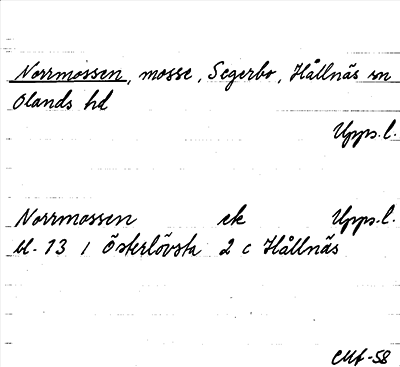 Norrmossen, mosse, Segerbo, Hållnäs sn
Olands hd
Upps.l.
Norrmossen ek Upps.l.
bl. 13 1 Österlövsta 2 c Hållnäs
-58